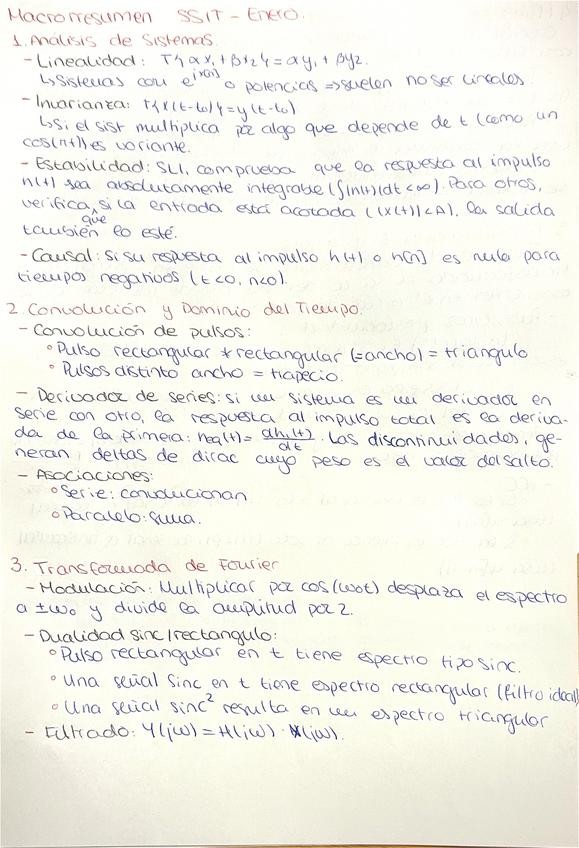 Macrorresumen SSIT - Enero.
1. Análisis de Sistemas.
- Linealidad: T{αx₁ + βx₂} = αy₁ + βy₂.
↳ Sistemas con e^{jx(n)} o potencias => suelen no ser lineales.
- Invarianza: T{x(t-t₀)} = y(t-t₀)
↳ Si el sist multiplica por algo que depende de t (como un
cos(πt)) es variante.
- Estabilidad: SLI, comprueba que la respuesta al impulso
h(t) sea absolutamente integrable (∫|h(t)|dt < ∞). Para otros,
verifica que si la entrada está acotada (|x(t)| < A), la salida
también lo esté.
- Causal: Si su respuesta al impulso h(t) o h[n] es nula para
tiempos negativos (t<0, n<0).
2. Convolución y Dominio del Tiempo.
- Convolución de pulsos:
◦ Pulso rectangular * rectangular (= ancho) = triangulo
◦ Pulsos distinto ancho = trapecio.
- Derivador de series: si un sistema es un derivador en
serie con otro, la respuesta al impulso total es la deriva-
da de la primera: heq(t) = dh₁(t)/dt. Las discontinuidades, ge-
neran deltas de dirac cuyo peso es el valor del salto.
- Asociaciones:
◦ Serie: convolucionan
◦ Paralelo: suma.
3. Transformada de Fourier
- Modulación: Multiplicar por cos(ω₀t) desplaza el espectro
a ±ω₀ y divide la amplitud por 2.
- Dualidad sinc/rectangulo:
◦ Pulso rectangular en t tiene espectro tipo sinc.
◦ Una señal sinc en t tiene espectro rectangular (filtro ideal)
◦ Una señal sinc² resulta en un espectro triangular
- Filtrado: Y(jω) = H(jω) · X(jω).